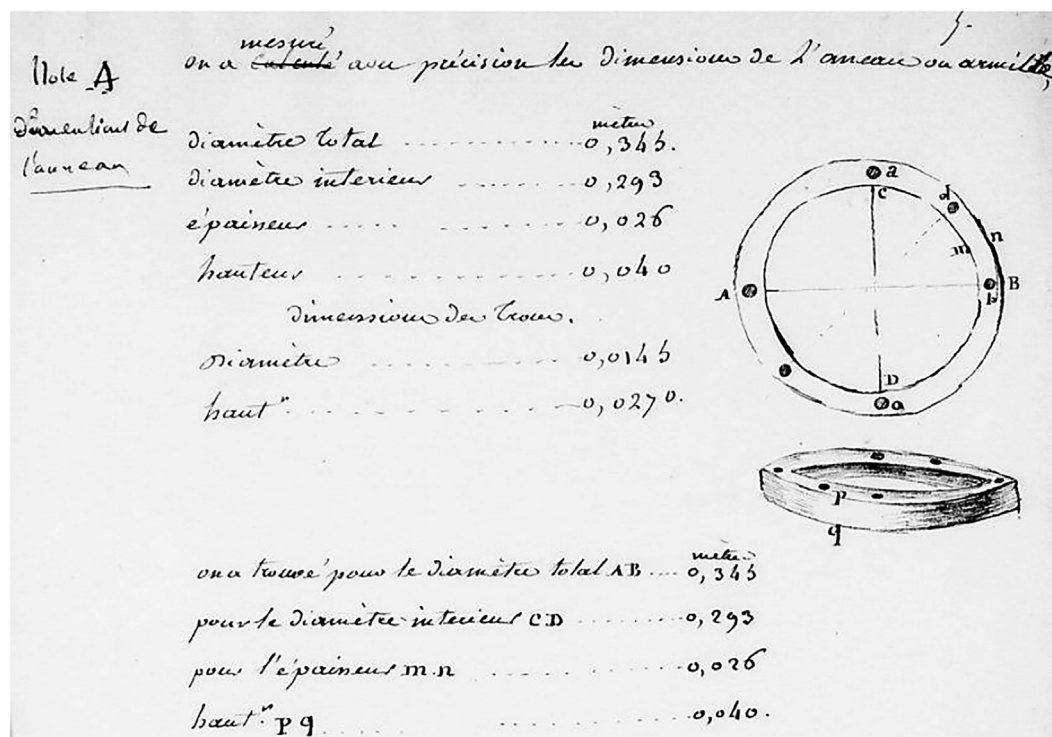 5.
Note A
Dimentions de
l'anneau
mesuré
on a calculé avec précision les dimensions de L'anneau ou armille,
mètre
diamètre total ........ 0,345.
diamètre interieur ...... 0,293
épaisseur ..... ...... 0,026
hauteur ........... 0,040
dimensions des trous.
Diamètre ........ 0,0145
hautr. ............ 0,0270.
a
C
d
n
m
A
B
b
D
a
p
q
mètre
on a trouvé pour le diamètre total AB .... 0,345
pour le diamètre interieur C.D ........ 0,293
pour l'épaisseur m.n ......... 0,026
hautr. p q ......... 0,040.